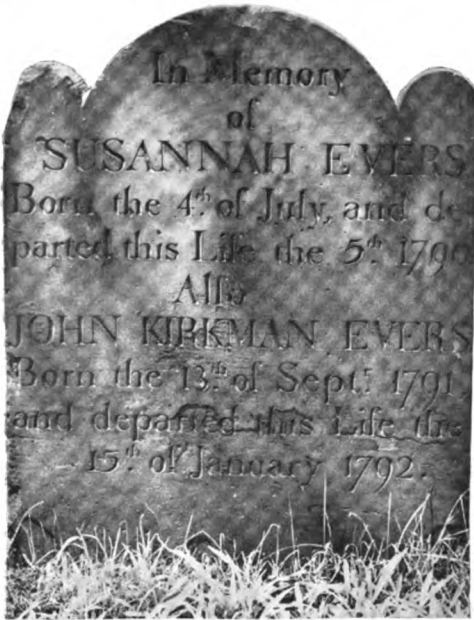 In Memory
of
SUSANNAH EVERS
Born the 4th. of July, and de
parted this Life the 5th 1790
Also
JOHN KIRKMAN EVERS
Born the 13th. of Septr. 1791,
and departed this Life the
15th of January 1792.